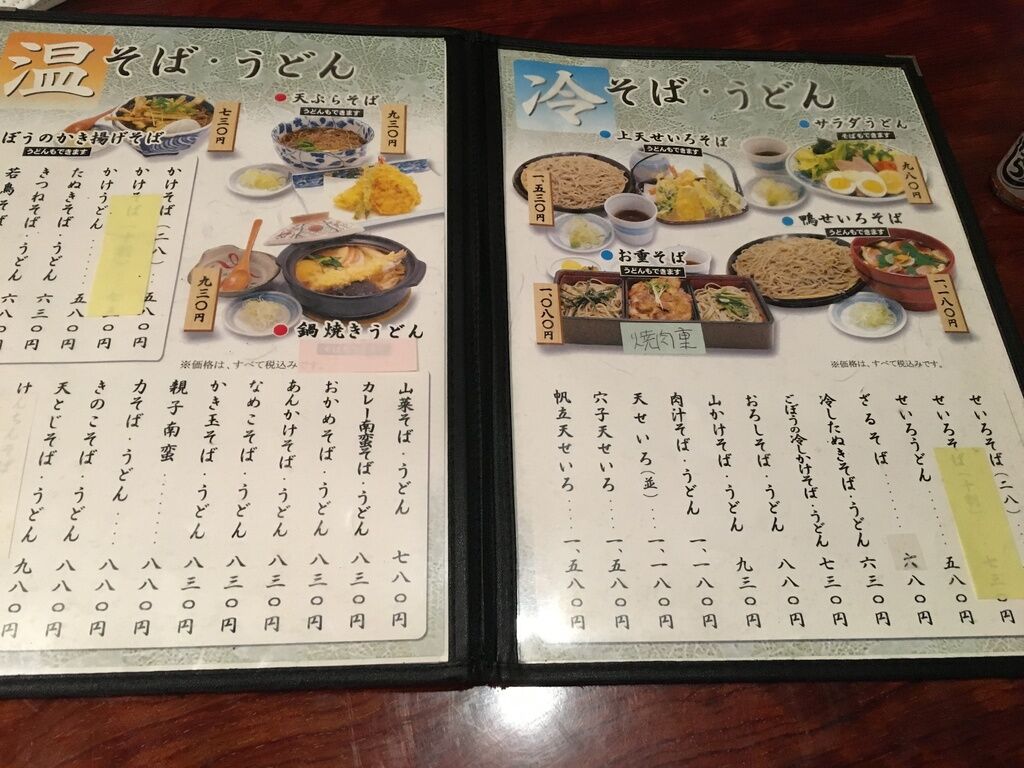 温 そば・うどん
ぼうのかき揚げそば
うどんもできます
七三〇円
天ぷらそば
うどんもできます
九三〇円
九三〇円
鍋焼きうどん
※価格は、すべて税込みです。
かけそば(二八) 五八〇円
かけそば
かけうどん‥‥
たぬきそば・うどん 五八〇円
きつねそば・うどん 六三〇円
若鳥そば・うどん 六八〇円
山菜そば・うどん 七八〇円
カレー南蛮そば・うどん 八三〇円
おかめそば・うどん 八三〇円
あんかけそば・うどん 八三〇円
なめこそば・うどん 八三〇円
かき玉そば・うどん 八三〇円
親子南蛮‥‥ 八三〇円
力そば・うどん‥‥ 八八〇円
きのこそば・うどん 八八〇円
天とじそば・うどん 九八〇円
け
冷 そば・うどん
上天せいろそば
うどんもできます
一、五三〇円
サラダうどん
そばもできます
九八〇円
鴨せいろそば
うどんもできます
一、一八〇円
お重せいろ
うどんもできます
一、〇八〇円
焼肉重
※価格は、すべて税込みです。
せいろそば(二八)‥‥
せいろそば(十割) 七三〇円
せいろうどん‥‥ 五八〇円
ざるそば‥‥ 六八〇円
冷したぬきそば・うどん 六三〇円
ごぼうの冷しかけそば・うどん 七三〇円
おろしそば・うどん 八八〇円
山かけそば・うどん 九三〇円
肉汁そば・うどん 一、一八〇円
天せいろ(並)‥‥ 一、一八〇円
穴子天せいろ‥‥ 一、五八〇円
帆立天せいろ‥‥ 一、五八〇円